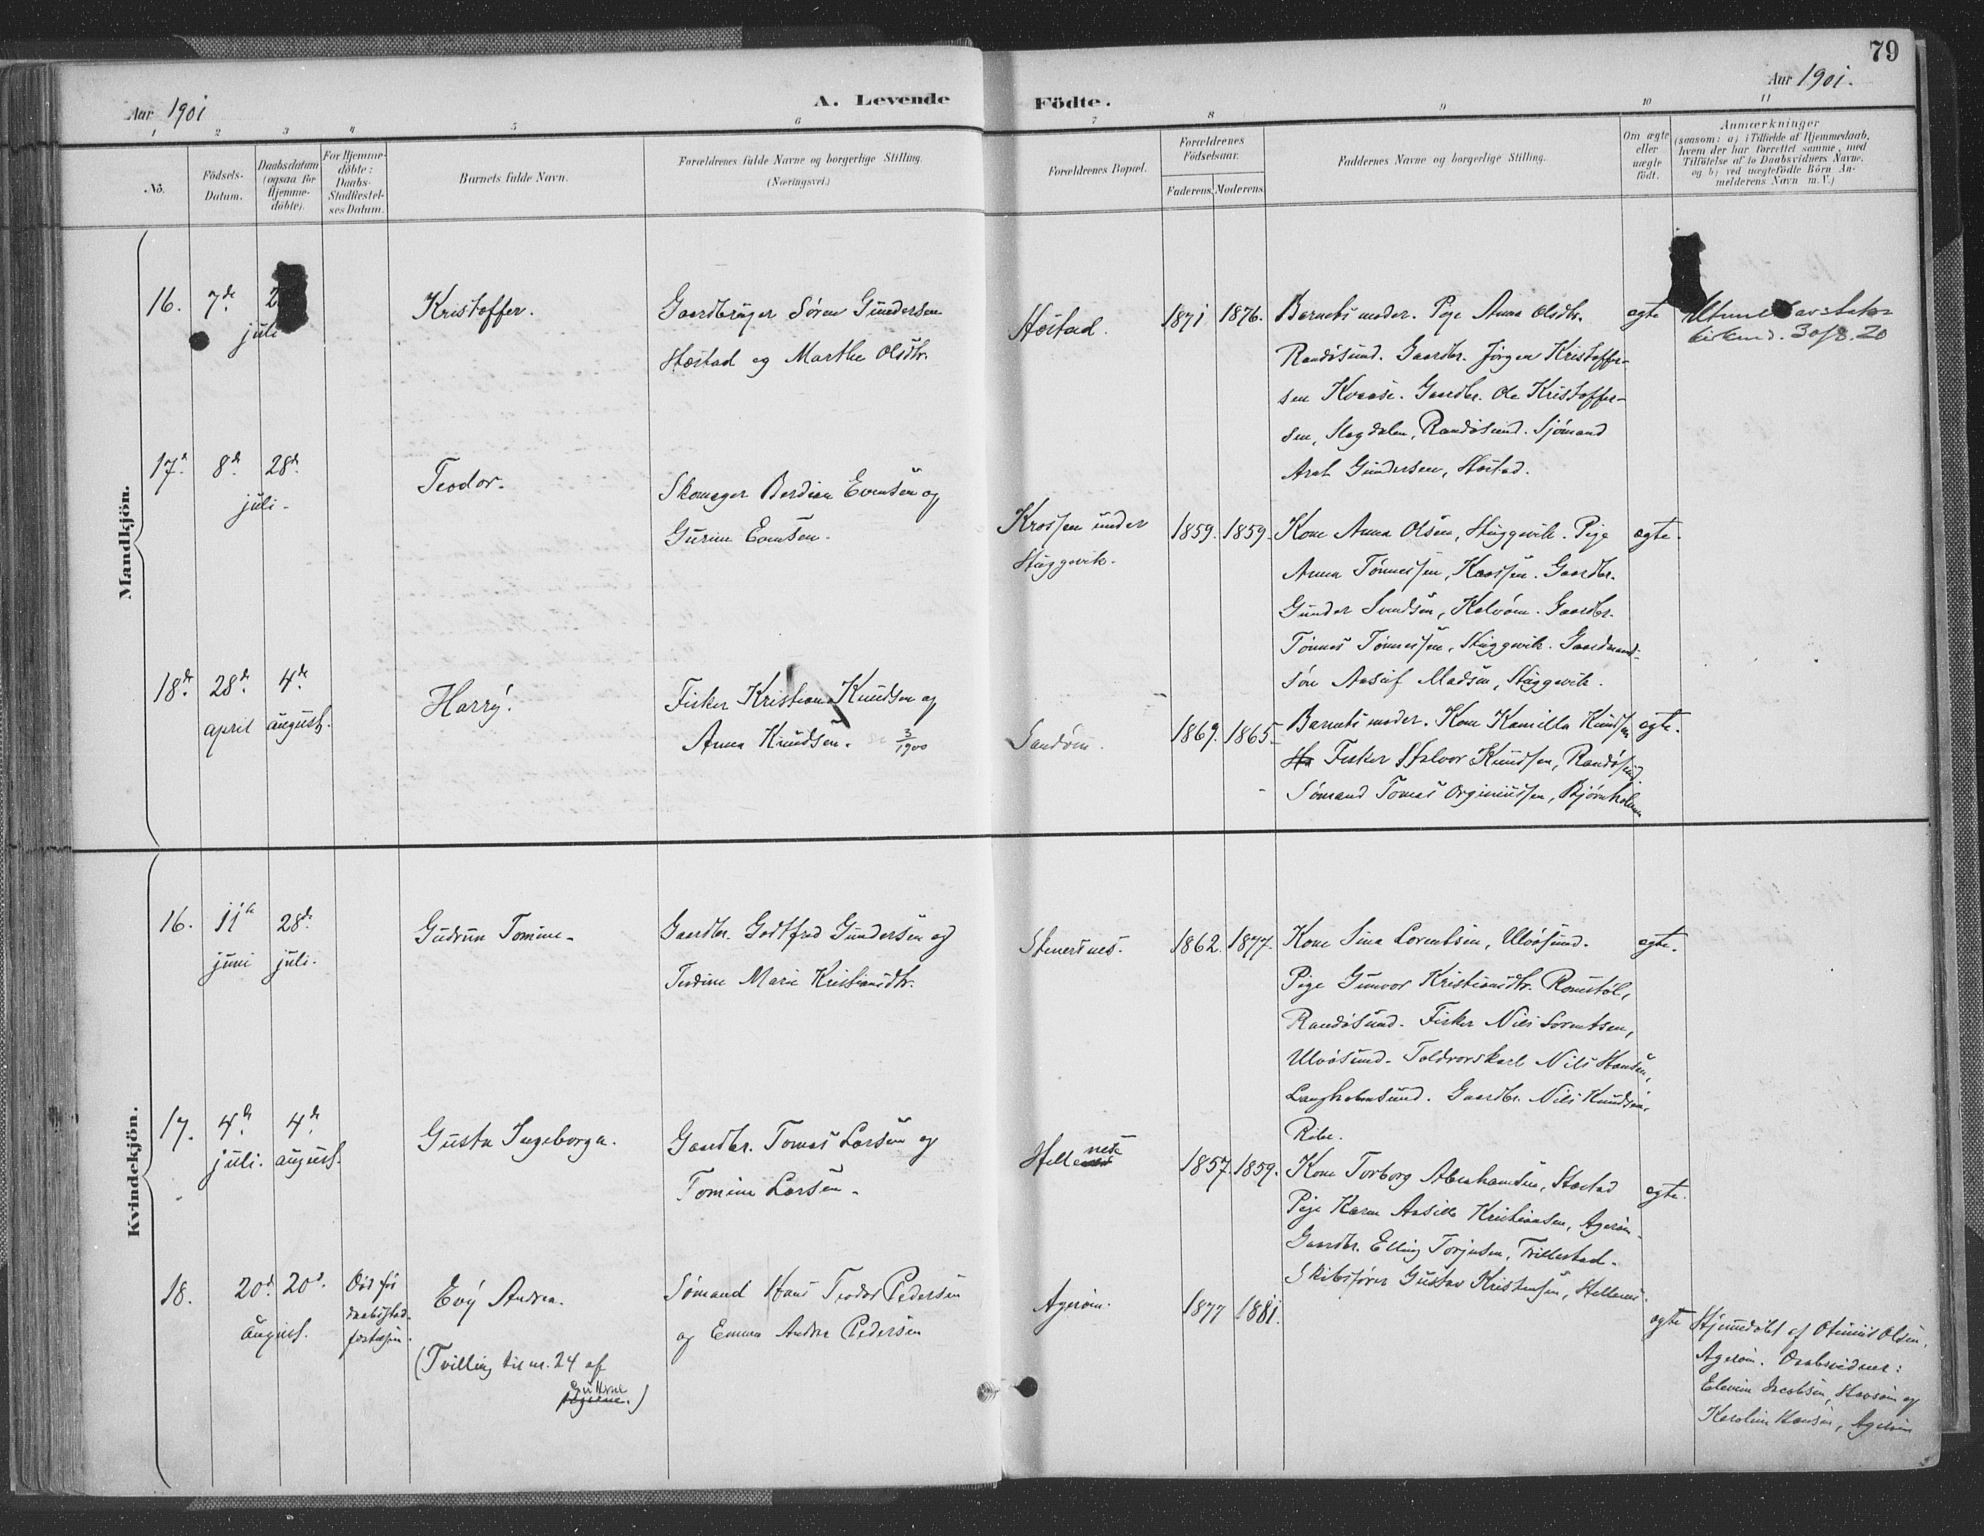 79
Aar 1901
A. Levende
Födte.
Aar 1901.
1 2 3 4 5 6 7 8 9 10 11
No.
Födsels-
Datum.
Daabsdatum
(ogsaa for
Hjemme-
döbte).
For Hjemme-
döbte:
Daabs-
Stadfæstel-
ses Datum.
Barnets fulde Navn.
Forældrenes fulde Navne og borgerlige Stilling.
(Næringsvei.)
Forældrenes Bopæl.
Forældrenes
Födselsaar.
Faderens. Moderens.
Faddernes Navne og borgerlige Stilling.
Om ægte
eller
uægte
födt.
Anmærkninger
(saasom: a) i Tilfælde af Hjemmedaab,
hvem der har forrettet samme, med
Tilföielse af to Daabsvidners Navne,
og b) ved uægtefödte Börn An-
melderens Navn m. V.)
Mandkjön.
16. 7de 2
juli
Kristoffer.
Gaardbruger Sören Gundersen
Høstad og Marthe Olsdtr.
Høstad.
1871 1876.
Barnets moder. Pige Anna Olsdtr.
Randøsund. Gaardbr. Jörgen Kristoffer-
sen Kvaase. Gaardbr. Ole Kristoffer-
sen, Stogdalen, Randøsund. Sjömand
Gundersen, Høstad.
ægte
30/8. 20
17. 8de 28de
juli.
Teodor.
Skomager Berdien Evensen og
Gurine Evensen.
Krossen under
Stuggevik.
1859. 1859.
Kone Anna Olsen, Stuggevik. Pige
Anna Tönnessen, Krossen. Gaardbr.
Gunder Svendsen, Kalvöen. Gaardbr.
Tönnes Tönnessen, Stuggevik. Gaardmand-
sön Madsen, Stuggevik.
ægte.
18de 28de 4de
april august.
Harry.
Fisker Kristian Knudsen og
Anna Knudsen. 3/1900
Sandöen.
1869. 1865.
Barnets moder. Kone Kamilla Knudsen
Fisker Halvor Knudsen, Randøsund
Sømand Tomas Orginiussen, Bjørnholmen
ægte.
Kvindekjön.
16. 11te 28de
juni juli.
Gudrun Tomine.
Gaardbr. Godtfred Gundersen og
Tedine Marie Kristiansdtr.
Stenersnes.
1862. 1877.
Kone Sina Lorentsen, Ulvøsund.
Pige Gunvor Kristiansdtr. Romstöl,
Randøsund. Fisker Nils Lorentsen,
Ulvøsund. Toldrorskarl Nils Hansen,
Langholmsund. Gaardbr. Nils Knudsen,
Ribe.
ægte.
17. 4de 4de
juli. august.
Gusta Ingeborga.
Gaardbr. Tomas Larsen og
Tomine Larsen.
Hellenese
1857. 1859.
Kone Torborg Abrahamsen, Høstad
Pige Karen Aasille Kristiansen, Ageröen
Gaardbr. Elling Torjusen, Trillestad.
Skibsförer Gustav Kristensen, Hellenes.
ægte.
18. 20de 20de
august.
Död før
daabsstad-
fæstelsen.
Evy Andrea.
(Tvilling til nr. 24 af
guttene)
Sømand Hans Teodor Pedersen
og Emma Andrea Pedersen
Ageröen.
1877 1881.
ægte
Hjemmedöbt af Otinius Olsen,
Ageröen. Daabsvidner:
Elevine Jacobsen, og
Karoline Hansen, Ageröen